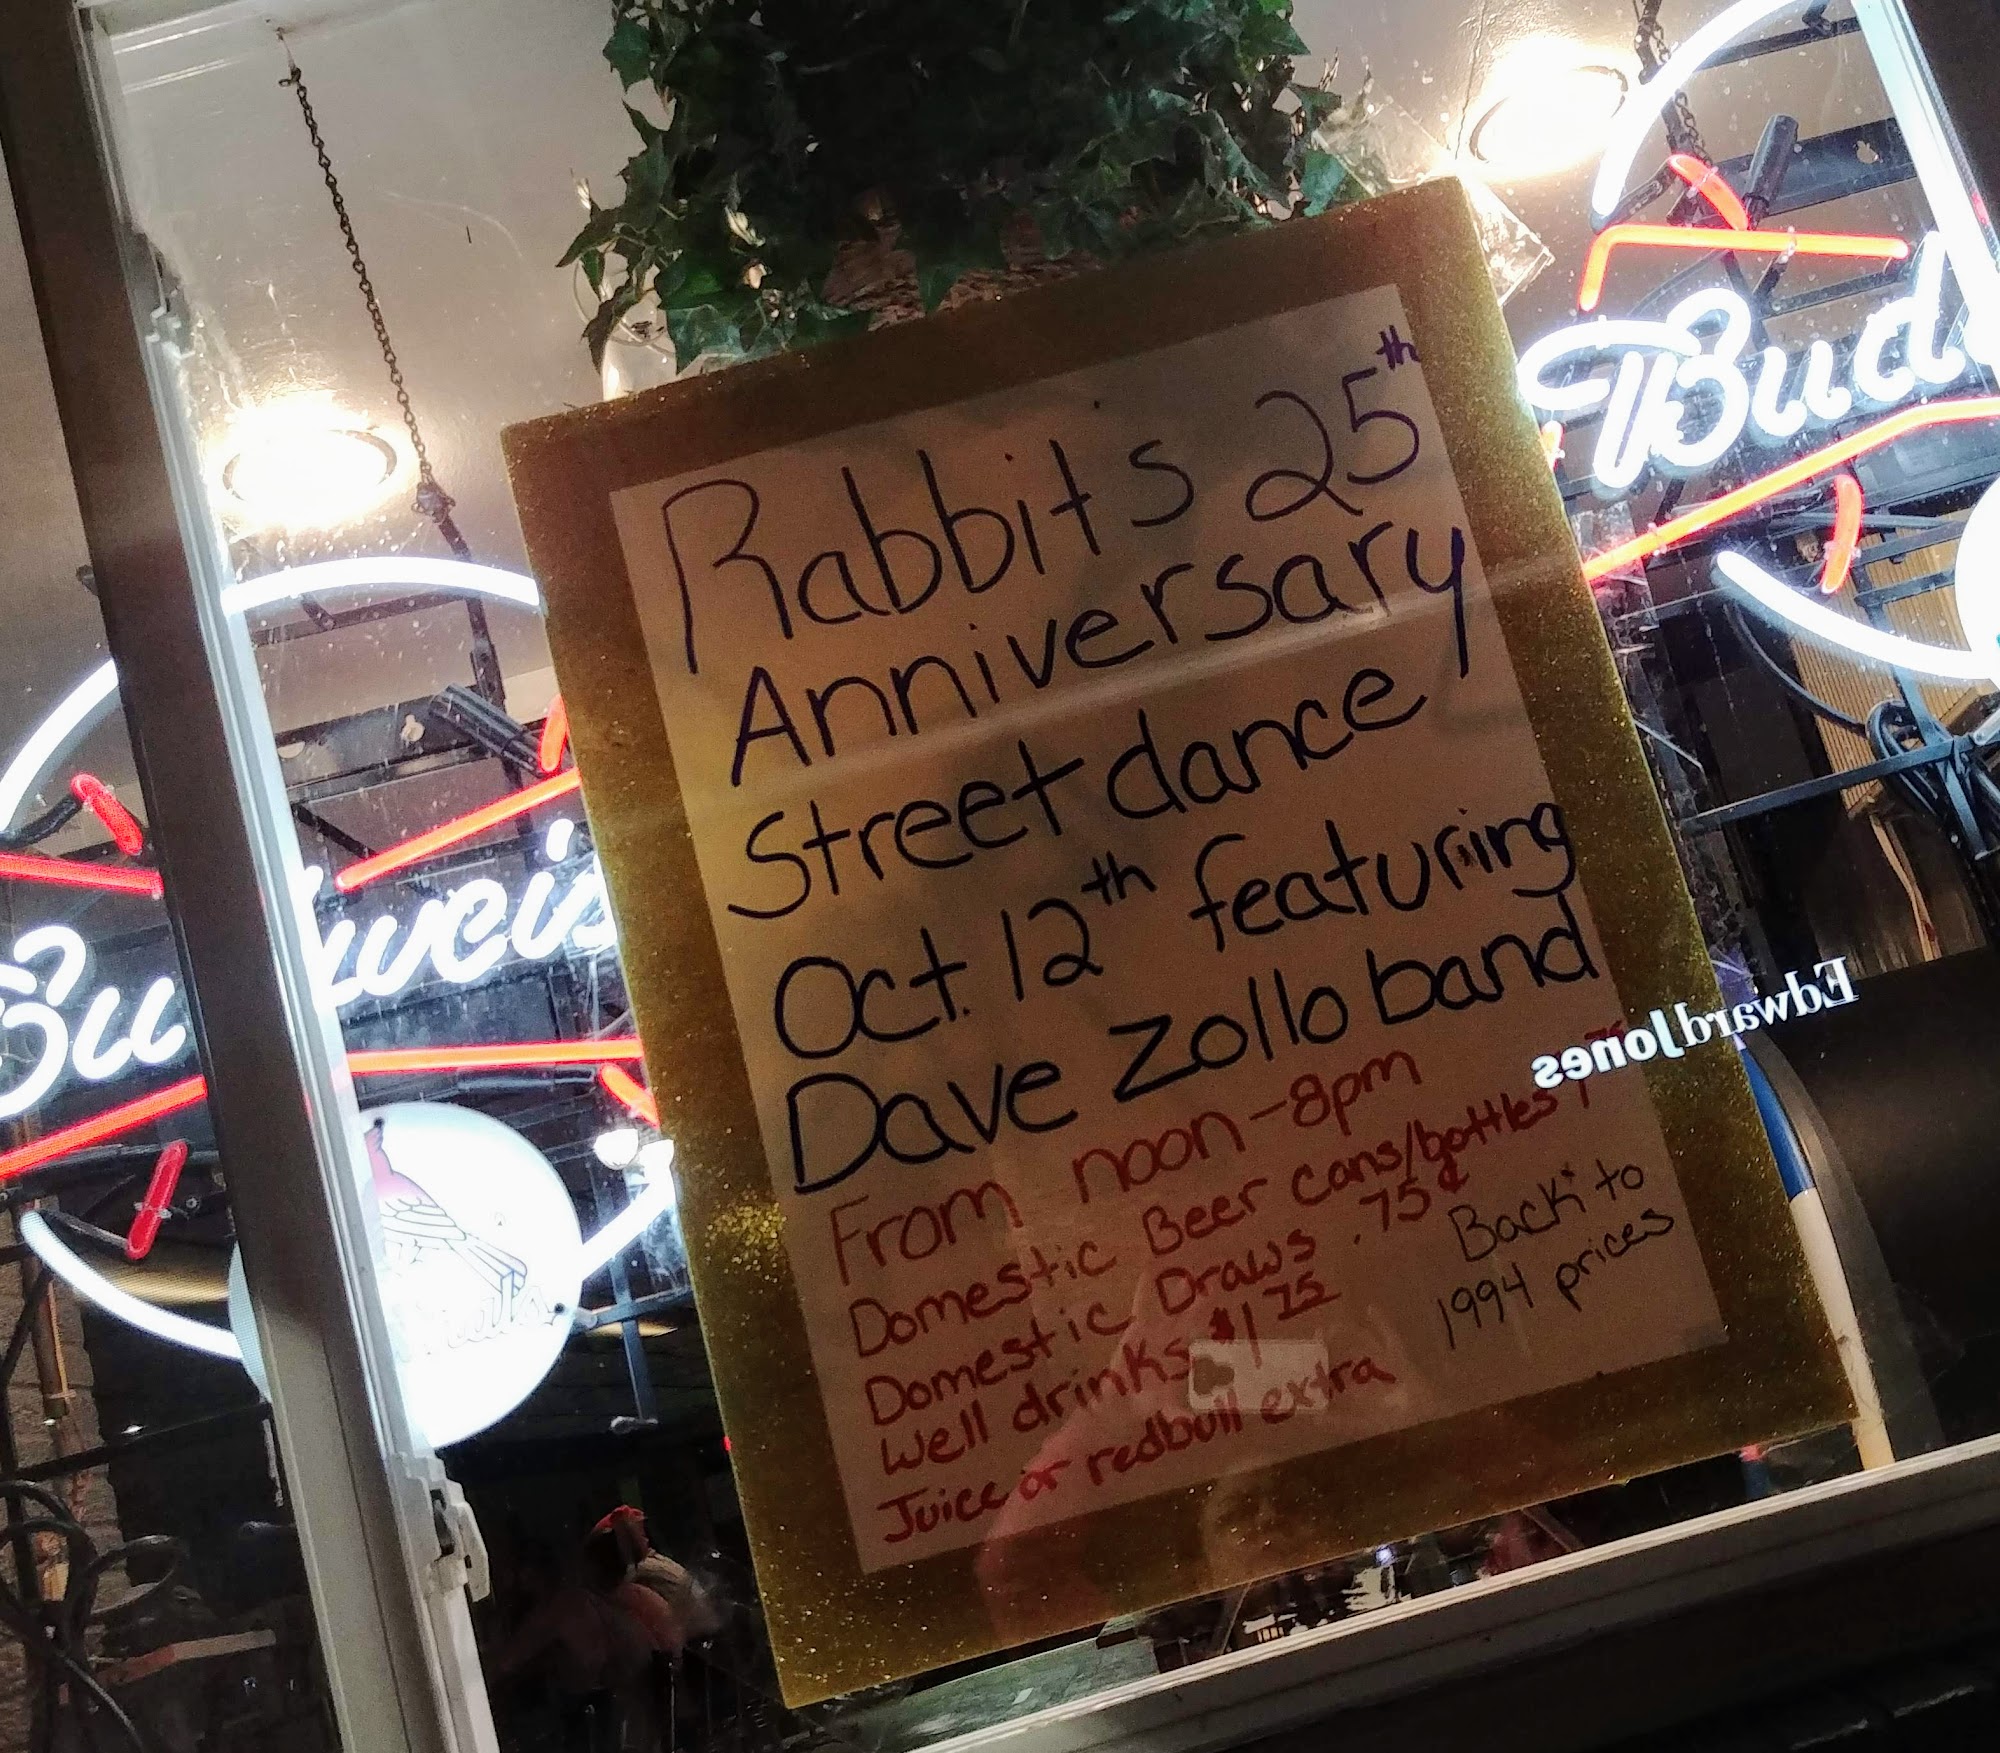 Rabbit's 25th
Anniversary
Street dance
Oct. 12th featuring
Dave Zollo band
From noon-8pm
Domestic Beer cans/bottles
Domestic Draws .75¢
Well drinks $1 75
Juice or redbull extra
Back to
1994 prices
Bud
Bu weis
Edward Jones